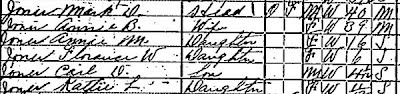 Jones Mark D. Head 1 O F M W 40 M
Jones Annie B. Wife F W 39 M
Jones Annie M. Daughter F W 16 S
Jones Florence W Daughter F W 6 S
Jones Carl D. Son M W S
Jones Hattie L. Daughter F W S